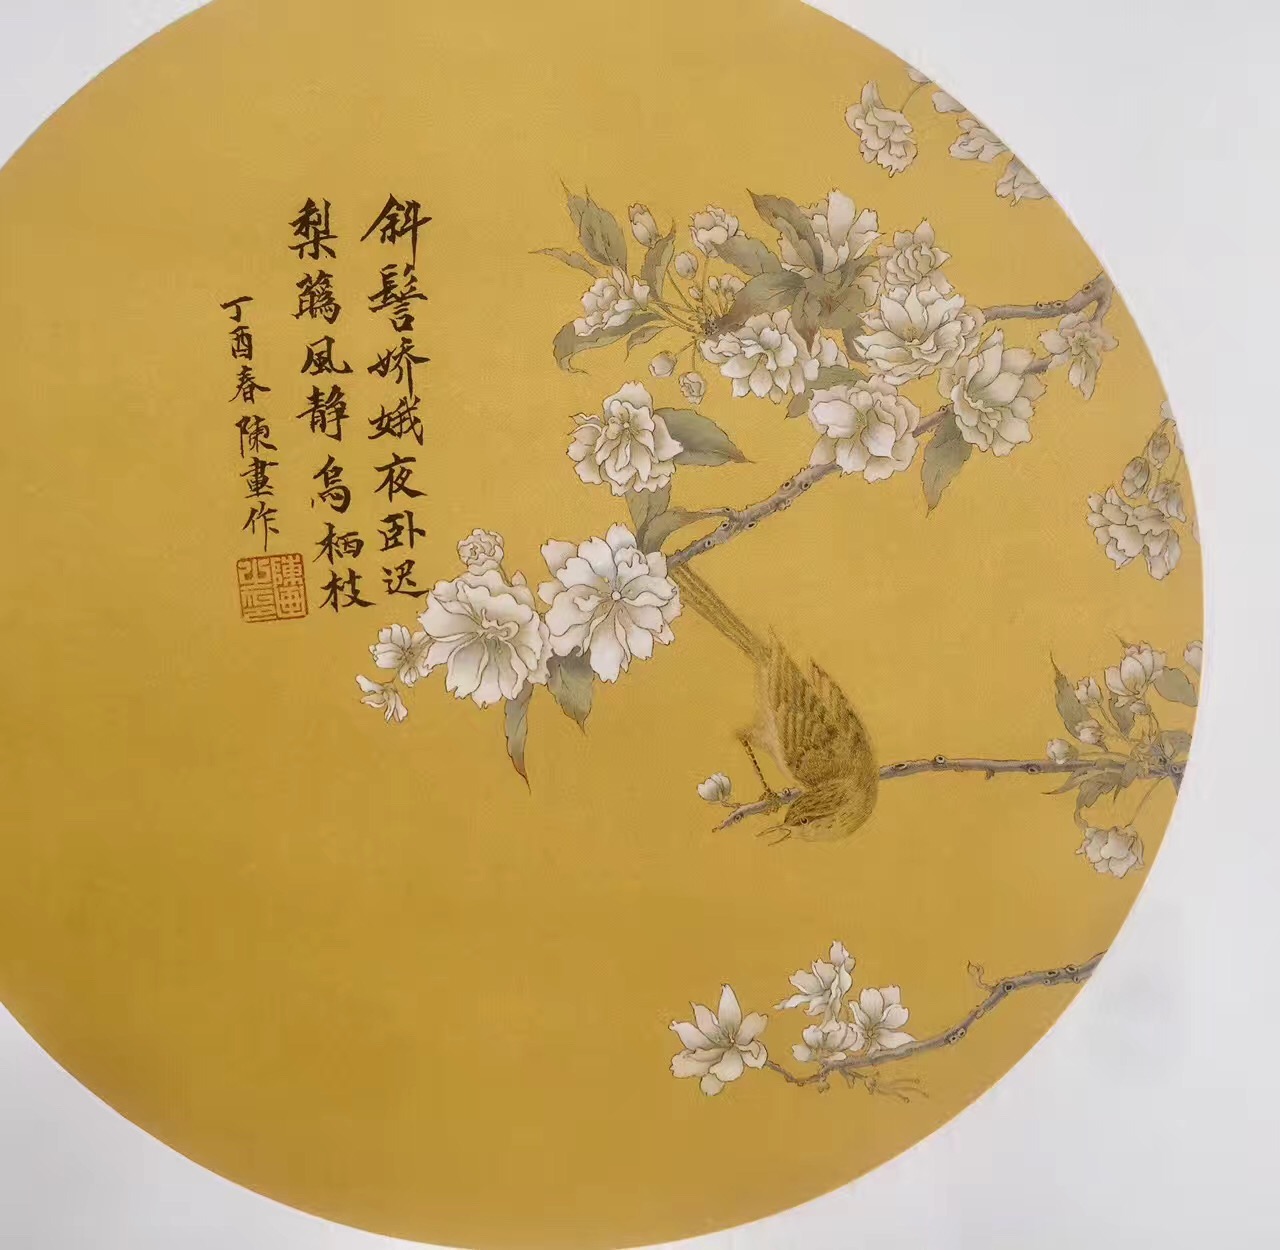 斜髻娇娥夜卧迟
梨蘤風静鳥栖枝
丁酉春陳畫作